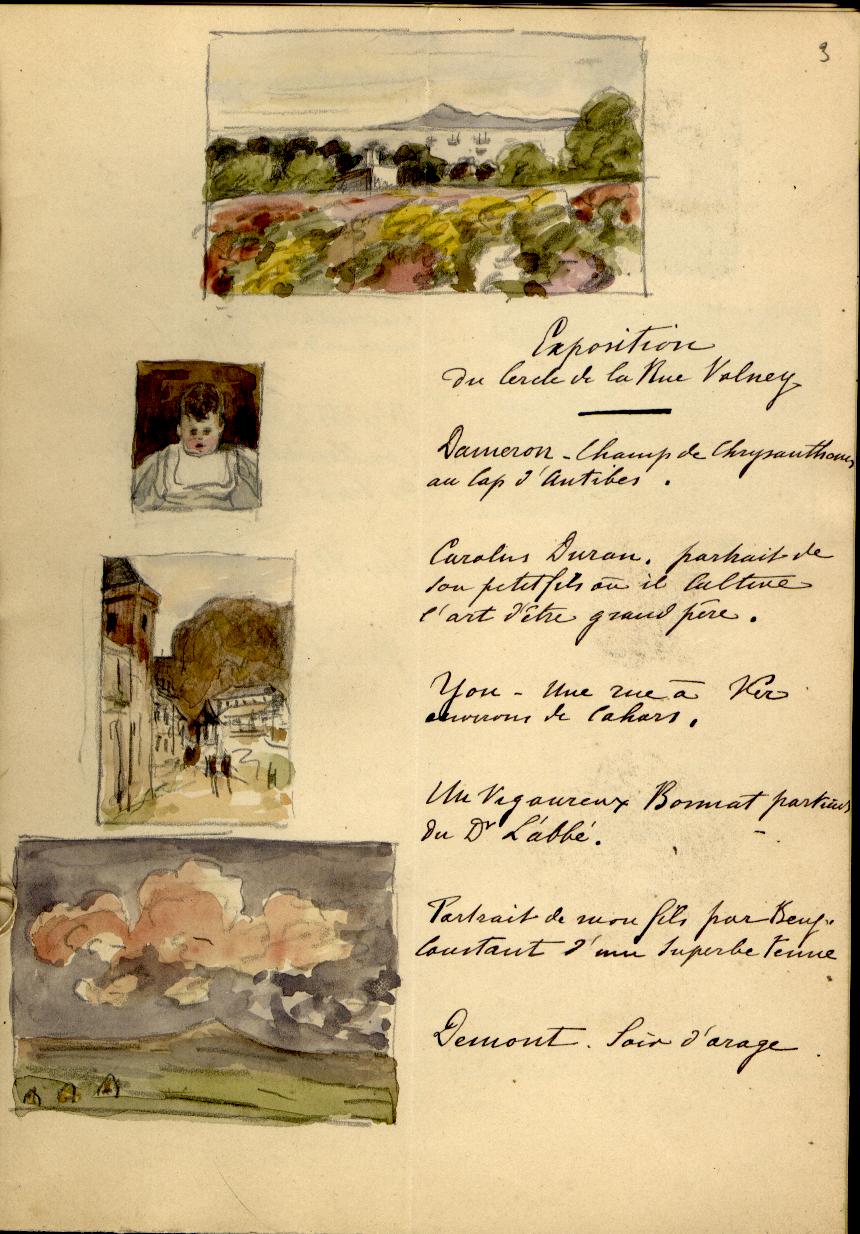 3
Exposition
du Cercle de la Rue Volney
Dameron - Champ de Chrysanthemes
au Cap d'Antibes.
Carolus Duran. portrait de
son petit fils où il Cultive
l'art d'être grand père.
Yon - Une rue à
environs de Cahors.
Un Vigoureux Bonnat portrait
du Dr Labbé.
Portrait de mon fils par Benj.
Constant d'une Superbe tenue
Demont. Soir d'orage